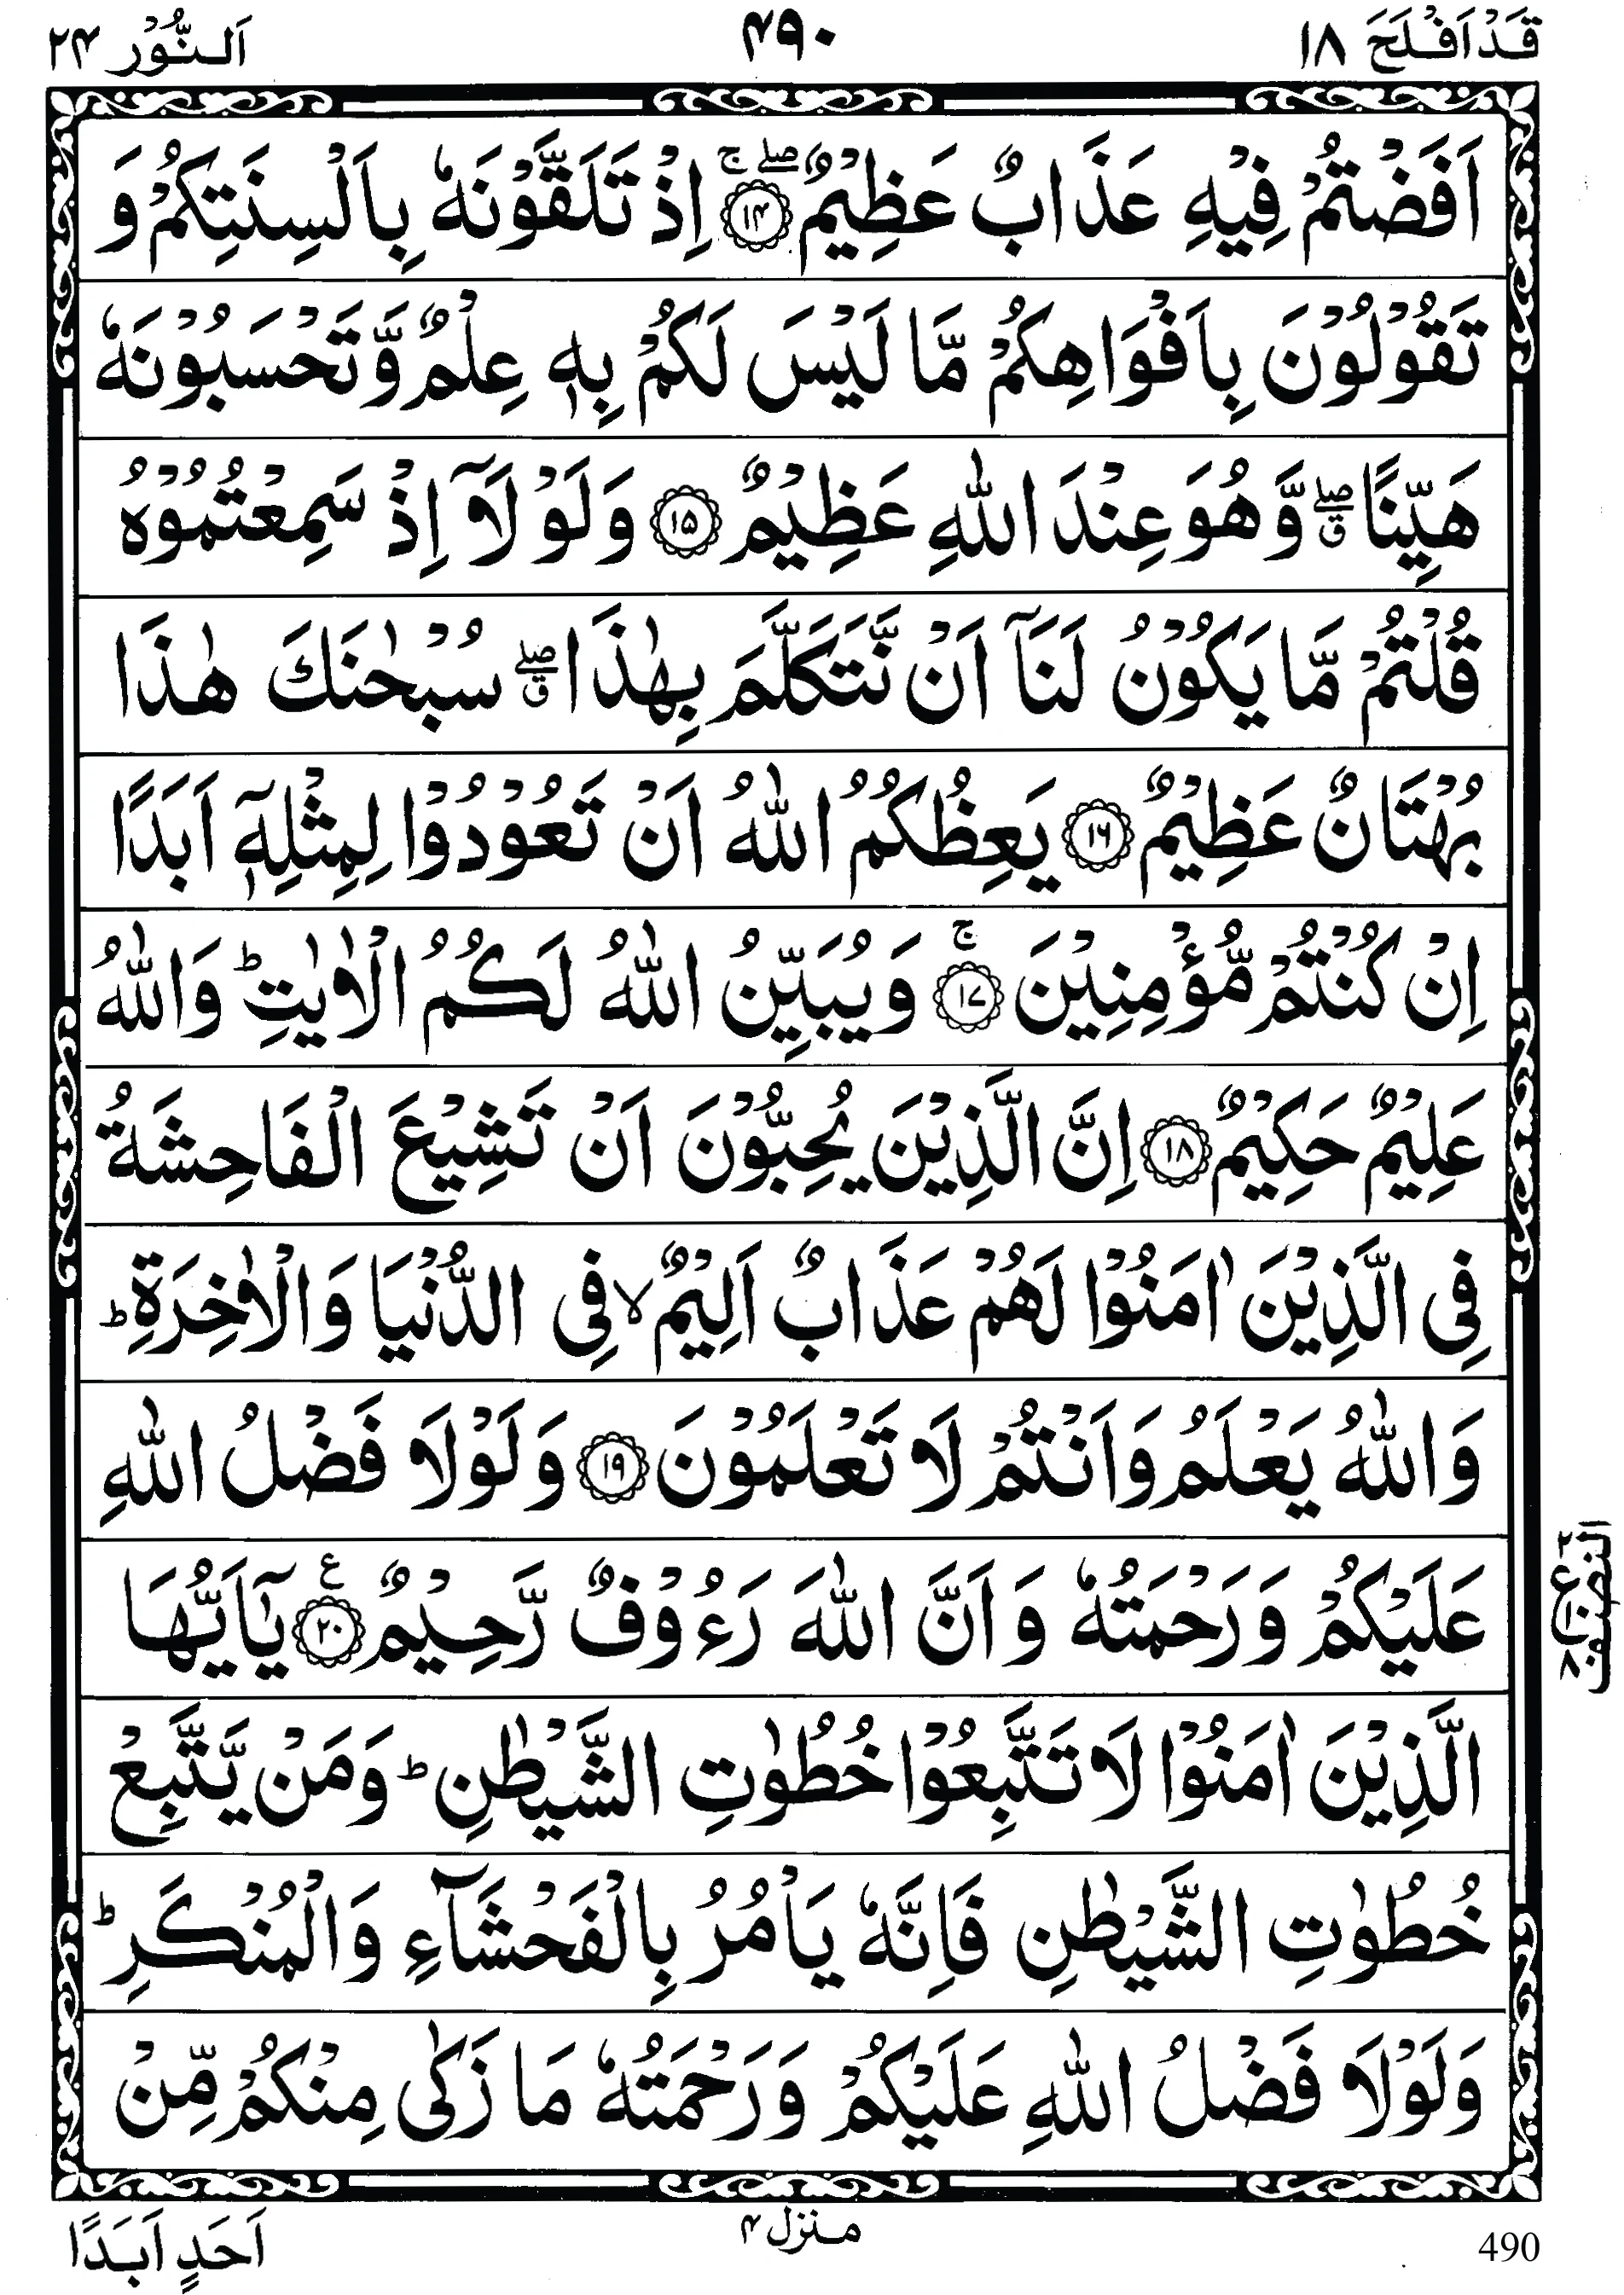 قَدْ اَفْلَحَ ١٨
۴۹۰
اَلنُّوْر ۲۴
اَفَضْتُمْ فِيْهِ عَذَابٌ عَظِيْمٌ ۖۚ ﴿۱۴﴾ اِذْ تَلَقَّوْنَهٗ بِاَلْسِنَتِكُمْ وَ
تَقُوْلُوْنَ بِاَفْوَاهِكُمْ مَّا لَيْسَ لَكُمْ بِهٖ عِلْمٌ وَّ تَحْسَبُوْنَهٗ
هَيِّنًا ۖق وَّ هُوَ عِنْدَ اللّٰهِ عَظِيْمٌ ﴿۱۵﴾ وَ لَوْ لَاۤ اِذْ سَمِعْتُمُوْهُ
قُلْتُمْ مَّا يَكُوْنُ لَنَاۤ اَنْ نَّتَكَلَّمَ بِهٰذَا ۖق سُبْحٰنَكَ هٰذَا
بُهْتَانٌ عَظِيْمٌ ﴿۱۶﴾ يَعِظُكُمُ اللّٰهُ اَنْ تَعُوْدُوْا لِمِثْلِهٖۤ اَبَدًا
اِنْ كُنْتُمْ مُّؤْمِنِيْنَ ۚ ﴿۱۷﴾ وَ يُبَيِّنُ اللّٰهُ لَكُمُ الْاٰيٰتِ ؕ وَ اللّٰهُ
عَلِيْمٌ حَكِيْمٌ ﴿۱۸﴾ اِنَّ الَّذِيْنَ يُحِبُّوْنَ اَنْ تَشِيْعَ الْفَاحِشَةُ
فِى الَّذِيْنَ اٰمَنُوْا لَهُمْ عَذَابٌ اَلِيْمٌ ۙ فِى الدُّنْيَا وَ الْاٰخِرَةِ ؕ
وَ اللّٰهُ يَعْلَمُ وَ اَنْتُمْ لَا تَعْلَمُوْنَ ﴿۱۹﴾ وَ لَوْلَا فَضْلُ اللّٰهِ
عَلَيْكُمْ وَ رَحْمَتُهٗ وَ اَنَّ اللّٰهَ رَءُوْفٌ رَّحِيْمٌ ﴿۲۰﴾ ع يٰۤاَيُّهَا
الَّذِيْنَ اٰمَنُوْا لَا تَتَّبِعُوْا خُطُوٰتِ الشَّيْطٰنِ ؕ وَ مَنْ يَّتَّبِعْ
خُطُوٰتِ الشَّيْطٰنِ فَاِنَّهٗ يَاْمُرُ بِالْفَحْشَآءِ وَ الْمُنْكَرِ ؕ
وَ لَوْلَا فَضْلُ اللّٰهِ عَلَيْكُمْ وَ رَحْمَتُهٗ مَا زَكٰى مِنْكُمْ مِّنْ
النصف
ع
۲
۱۰
۸
منزل ۴
اَحَدٍ اَبَدًا
490